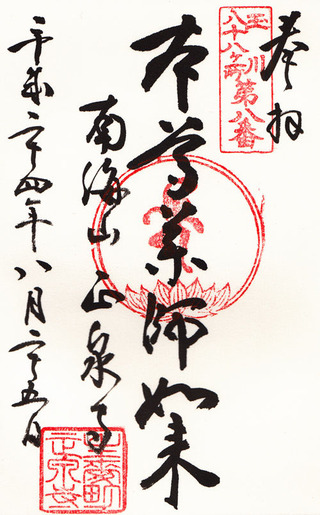 奉拝
玉川
八十八ヶ所
第八番
本尊薬師如来
南海山正泉寺
平成二十四年八月二十五日